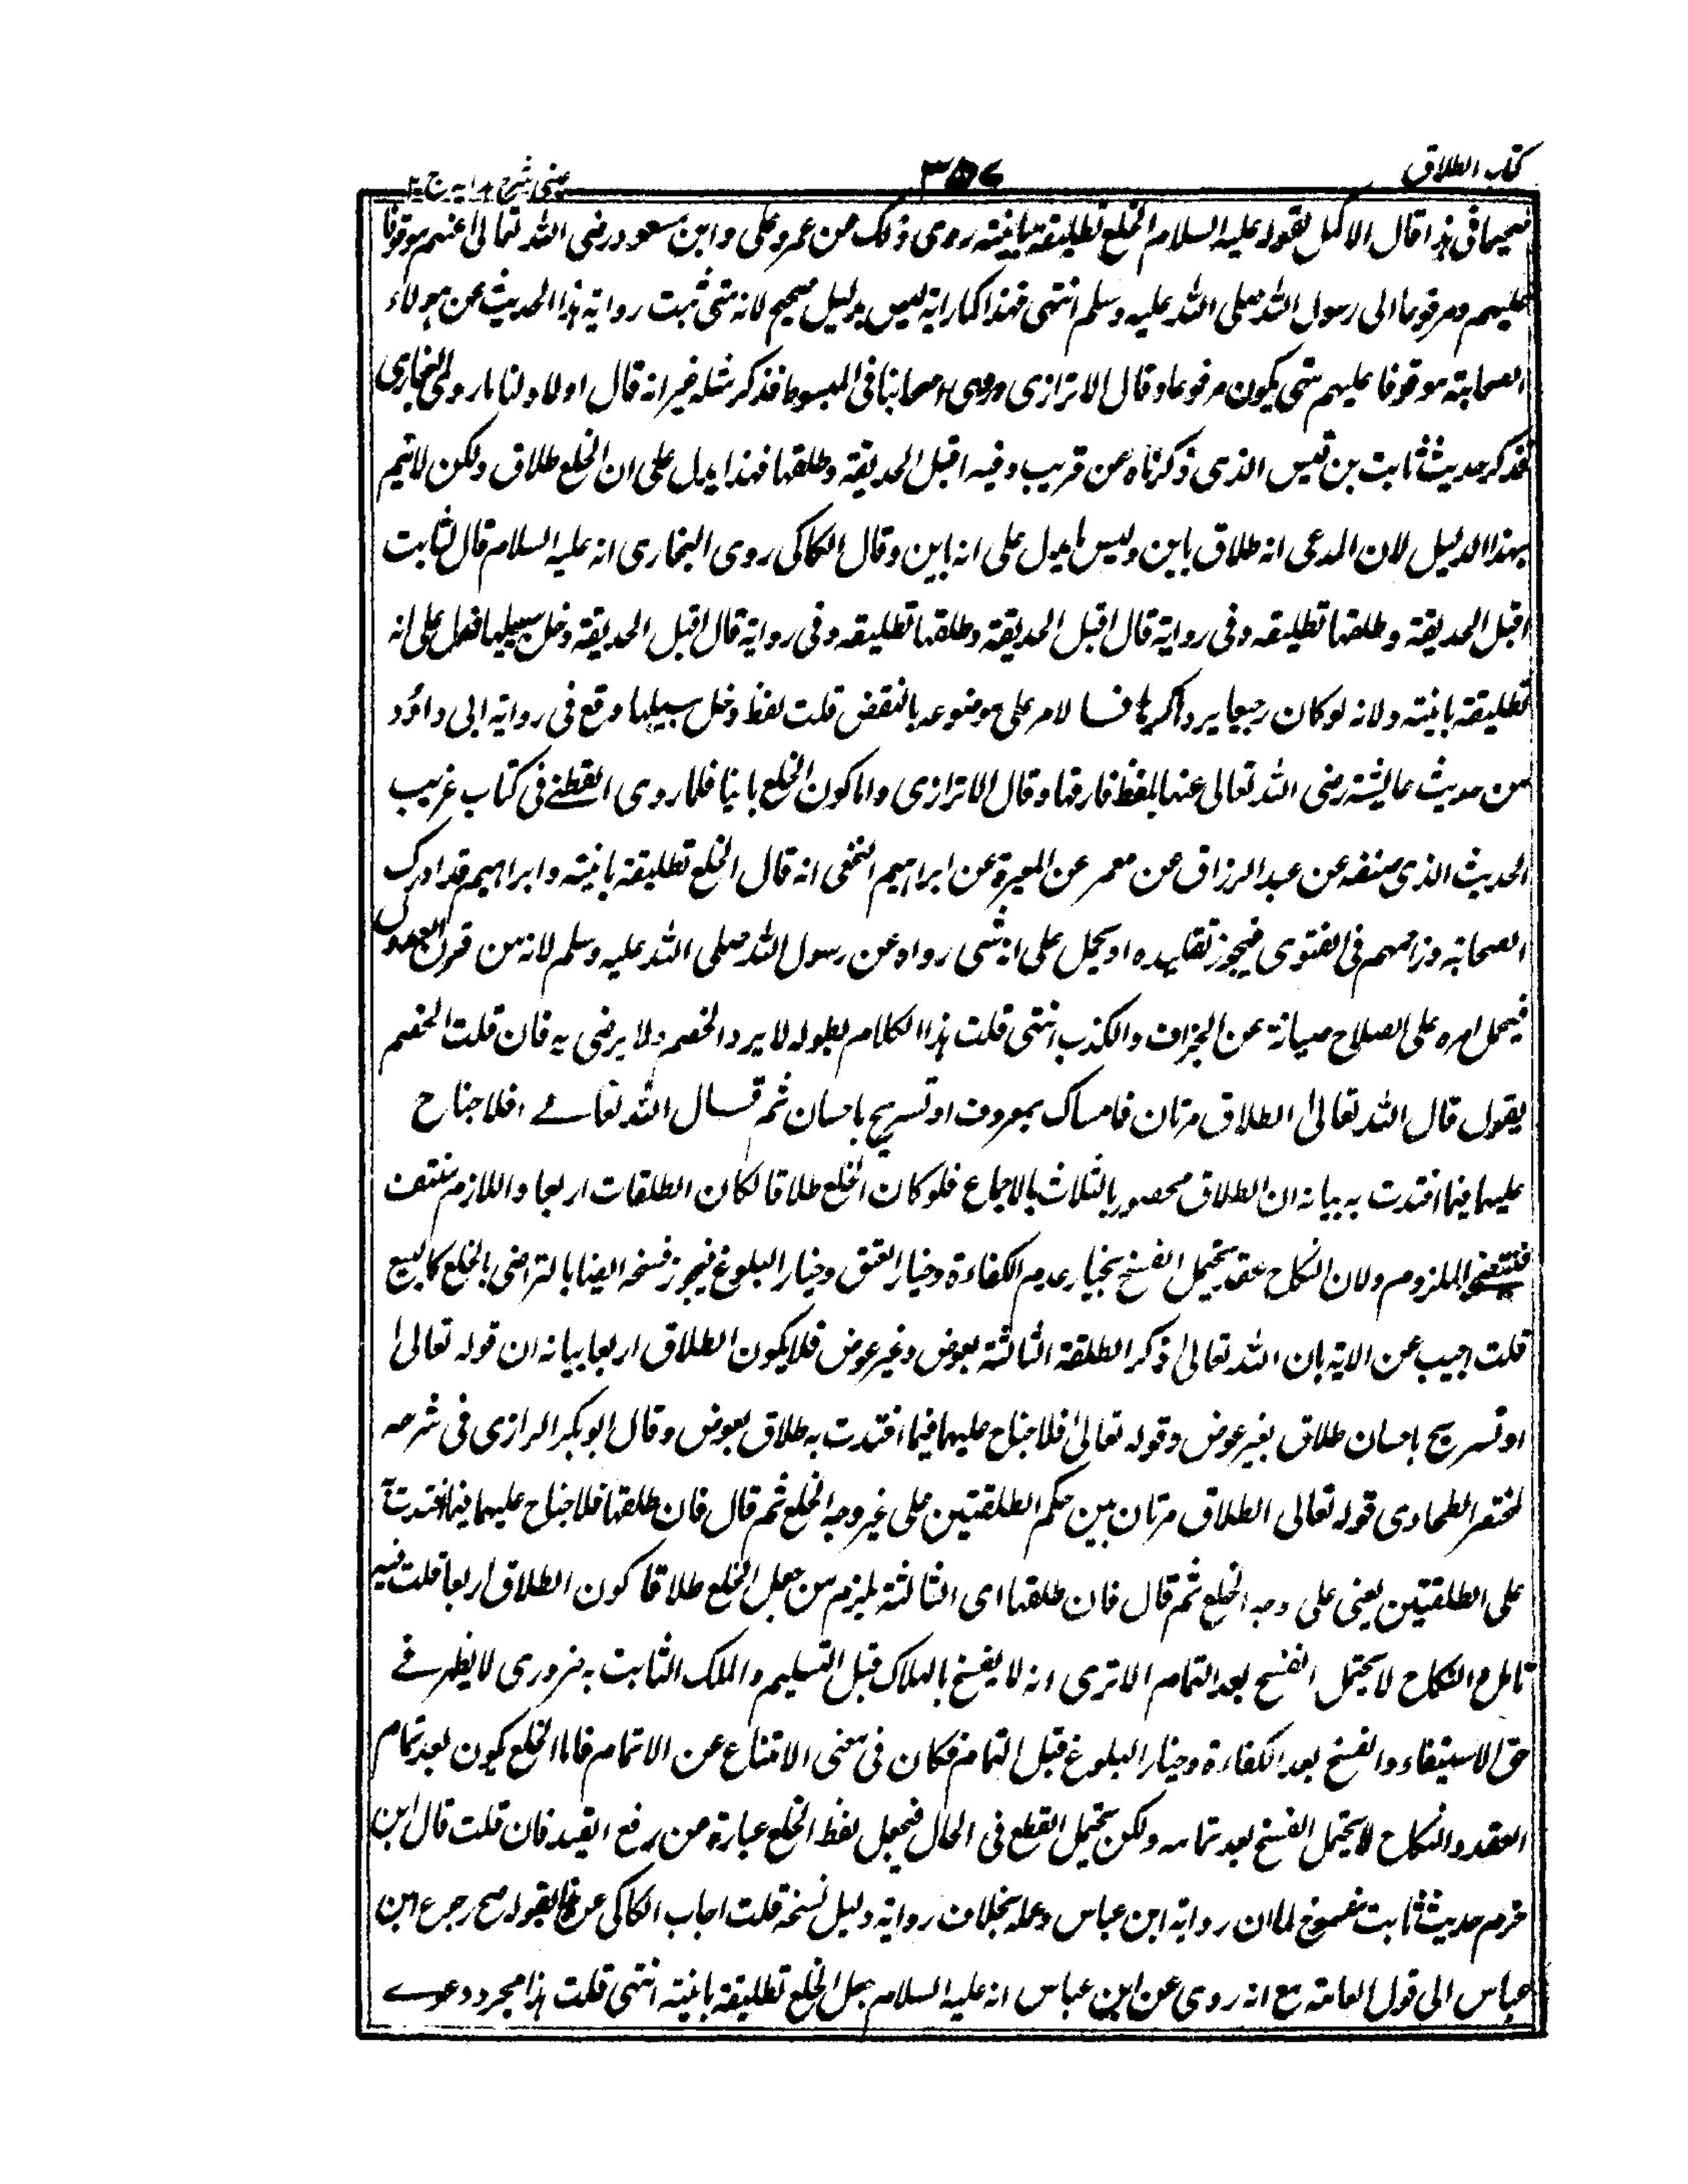 كتاب الطلاق
٣٥٧
عينى شرح هدايه ج ٢
صحيحا فى هذا قال الاكمل لقوله عليه السلام الخلع تطليقة باينة روى ذلك عن عمر وعلى وابن مسعود رضى الله تعالى عنهم موقوفا
عليهم ومرفوعا الى رسول الله صلى الله عليه وسلم انتهى فهذا كما رايه ليس بدليل صحيح لانه متى ثبت رواية هذا الحديث عن هولاء
الصحابة موقوفا عليهم حتى يكون مرفوعا وقال الاترازى وروى اصحابنا فى المبسوط فذكر مثله غير انه قال اولا ولنا ما روى البخارى
فذكر حديث ثابت بن قيس الذى ذكرناه عن قريب وفيه اقبل الحديقة وطلقها فهذا يدل على ان الخلع طلاق ولكن لا يتم
بهذا الدليل لان المدعى انه طلاق باين وليس ما يدل على انه باين وقال الكاكى روى البخارى انه عليه السلام قال لثابت
اقبل الحديقة وطلقها تطليقه وفى رواية قال اقبل الحديقة وطلقها تطليقه وفى رواية قال اقبل الحديقة وخل سبيلها فعل على انه
تطليقة باينة ولانه لو كان رجعيا يرد اكراها فسا لامر على موضوعه بالنقض قلت لفظ وخل سبيلها وقع فى رواية ابى داؤد
من حديث عايشة رضى الله تعالى عنها بلفظ فارقها وقال الاترازى واما كون الخلع باينا فلما روى القطنے فى كتاب غريب
الحديث الذى صنفه عن عبد الرزاق عن معمر عن المغيرة عن ابراهيم النخعى انه قال الخلع تطليقة باينة وابراهيم قد ادرك
الصحابة وزاحمهم فى الفتوى فيجوز تقليده او يحمل على انه شى رواه عن رسول الله صلى الله عليه وسلم لانه من قرن العدول
فيحمل امره على الصلاح صيانة عن الجزاف والكذب انتهى قلت هذا الكلام بطوله لا يرد الخصم ولا يرضى به فان قلت الخصم
يقول قال الله تعالى الطلاق مرتان فامساك بمعروف او تسريح باحسان ثم قال الله تعالے فلا جناح
عليهما فيما افتدت به بيانه ان الطلاق محصور بالثلاث بالاجماع فلو كان الخلع طلاقا لكان الطلقات اربعا واللازم منتف
فينتفى الملزوم ولان النكاح عقد يحتمل الفسخ بخيار عدم الكفاءة وخيار العتق وخيار البلوغ فيجوز فسخه ايضا بالتراضى بالخلع كالبيع
قلت اجيب عن الاية بان الله تعالى ذكر الطلقة الثالثة بعوض وغير عوض فلا يكون الطلاق اربعا بيانه ان قوله تعالى
او تسريح باحسان طلاق بغير عوض وقوله تعالى فلا جناح عليهما فيما افتدت به طلاق بعوض وقال ابو بكر الرازى فى شرحه
لمختصر الطحاوى قوله تعالى الطلاق مرتان بين حكم الطلقتين على غير وجه الخلع ثم قال فان طلقها فلا جناح عليهما فيما افتدت به
على الطلقتين يعنى على وجه الخلع ثم قال فان طلقها اى الثالثة يلزم من جعل الخلع طلاقا كون الطلاق اربعا قلت فيه
تامل والنكاح لا يحتمل الفسخ بعد التمام الا ترى انه لا يفسخ بالهلاك قبل التسليم والملك الثابت به ضرورى لا يظهر فے
حق الاستيفاء والفسخ بعد الكفاءة وخيار البلوغ قبل التمام فكان فى معنى الامتناع عن الاتمام فاما الخلع يكون بعد تمام
العقد والنكاح لا يحتمل الفسخ بعد تمامه ولكن يحتمل القطع فى الحال فيجعل لفظ الخلع عبارة من رفع القيد فان قلت قال ابن
حزم حديث ثابت منسوخ لما ان رواية ابن عباس وعمله بخلاف رواية دليل نسخه قلت اجاب الكاكى عن هذا بقوله صح رجوع ابن
عباس الى قول العامة مع انه روى عن ابن عباس انه عليه السلام جعل الخلع تطليقة باينة انتهى قلت هذا مجرد دعوے